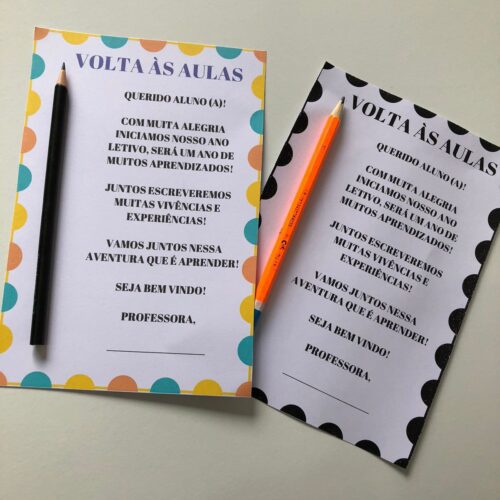 VOLTA ÀS AULAS
QUERIDO ALUNO (A)!
COM MUITA ALEGRIA
INICIAMOS NOSSO ANO
LETIVO, SERÁ UM ANO DE
MUITOS APRENDIZADOS!
JUNTOS ESCREVEREMOS
MUITAS VIVÊNCIAS E
EXPERIÊNCIAS!
VAMOS JUNTOS NESSA
AVENTURA QUE É APRENDER!
SEJA BEM VINDO!
PROFESSORA,
VOLTA ÀS AULAS
QUERIDO ALUNO (A)!
COM MUITA ALEGRIA
INICIAMOS NOSSO ANO
LETIVO, SERÁ UM ANO DE
MUITOS APRENDIZADOS!
JUNTOS ESCREVEREMOS
MUITAS VIVÊNCIAS E
EXPERIÊNCIAS!
VAMOS JUNTOS NESSA
AVENTURA QUE É APRENDER!
SEJA BEM VINDO!
PROFESSORA,